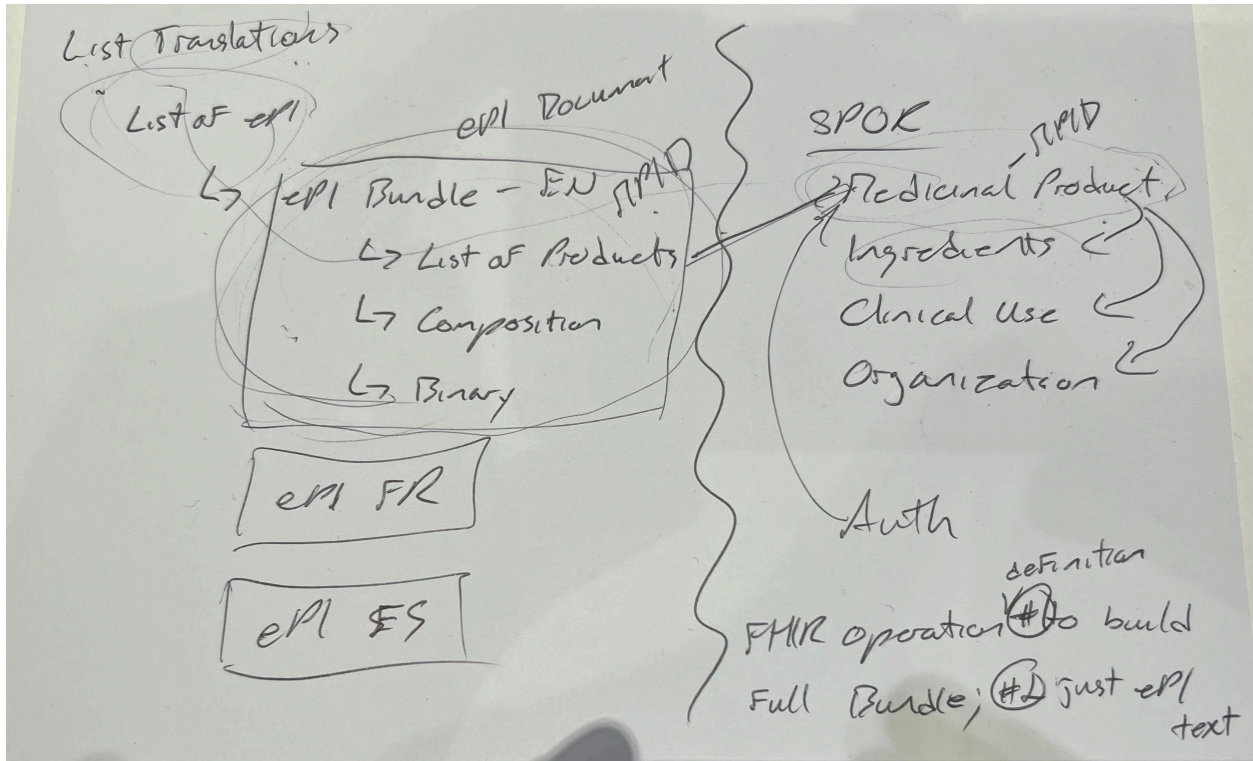 List Translations
List of ePI
ePI Document
ePI Bundle - EN MPID
List of Products
Composition
Binary
ePI FR
ePI ES
SPOR
- MPID
Medicinal Product
Ingredients
Clinical Use
Organization
Auth
definition
FHIR operation # to build
Full Bundle; #2 just ePI
text